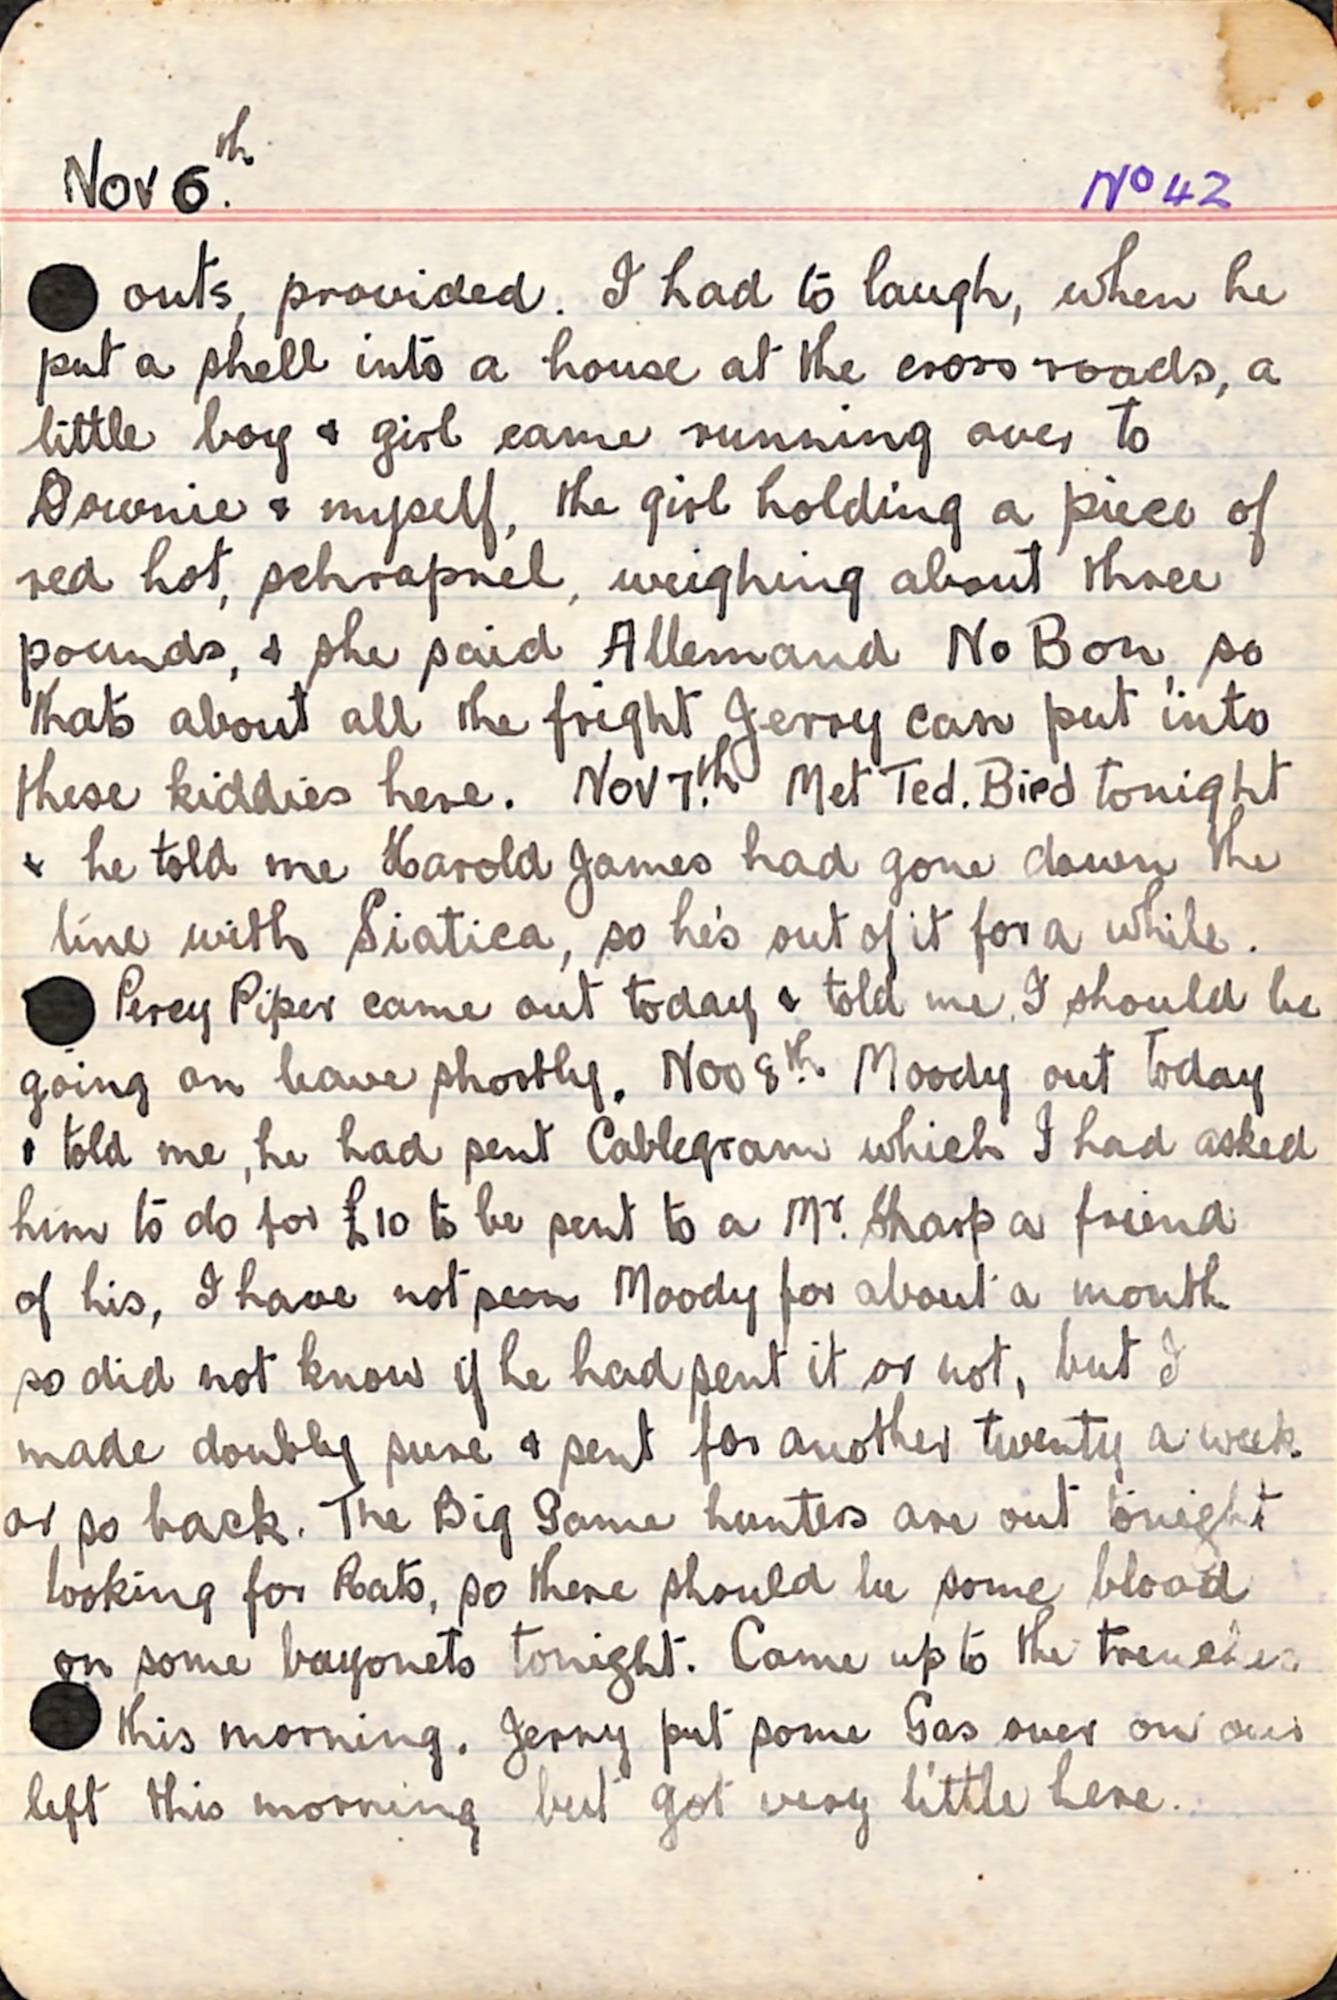 Nov 6th.
No 42
outs, provided. I had to laugh, when he
put a shell into a house at the cross roads, a
little boy & girl came running over to
Downie & myself, the girl holding a piece of
red hot, schrapnel, weighing about three
pounds, & she said Allemand No Bon, so
thats about all the fright Jerry can put into
these kiddies here. Nov 7th. Met Ted. Bird tonight
& he told me Harold James had gone down the
line with Siatica, so he's out of it for a while.
Percy Piper came out today & told me I should be
going on leave shortly. Nov 8th. Moody out today
& told me, he had sent Cablegram which I had asked
him to do for £10 to be sent to a Mr. Sharp a friend
of his, I have not seen Moody for about a month
so did not know if he had sent it or not, but I
made doubly sure & sent for another twenty a week
or so back. The Big Game hunters are out tonight
looking for Rats, so there should be some blood
on some bayonets tonight. Came up to the trenches
this morning. Jerry put some Gas over on our
left this morning but got very little here.